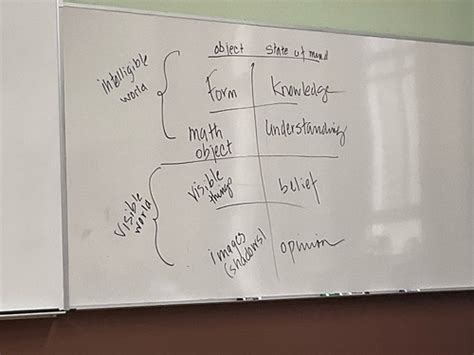 object state of mind
intelligible
world
Form Knowledge
math
object
understanding
visible
world
visible
things
belief
images
(shadows)
opinion